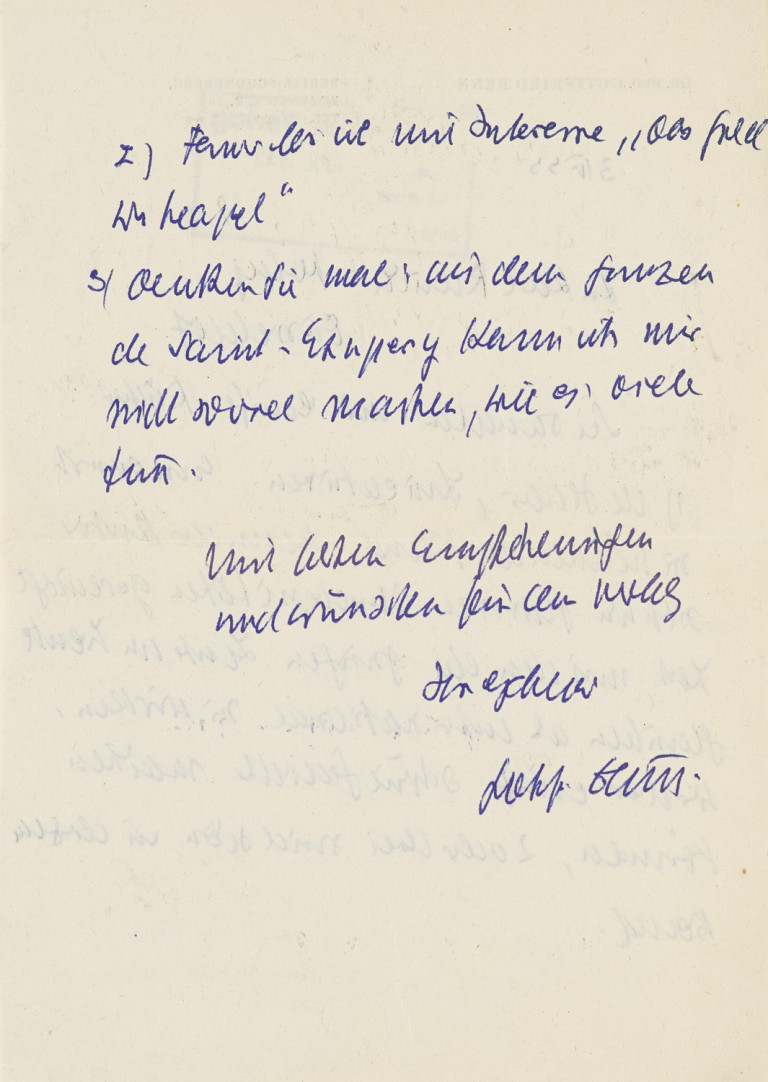 2) Ferner las ich mit Interesse „Das Gold
von Neapel“
3) Denken Sie mal: aus dem ganzen
de Saint-Exupery kann ich mir
nicht soviel machen, wie es viele
tun.
Mit besten Empfehlungen
und Wünschen für den Verlag
Ihr ergebener
Gottf. Benn.